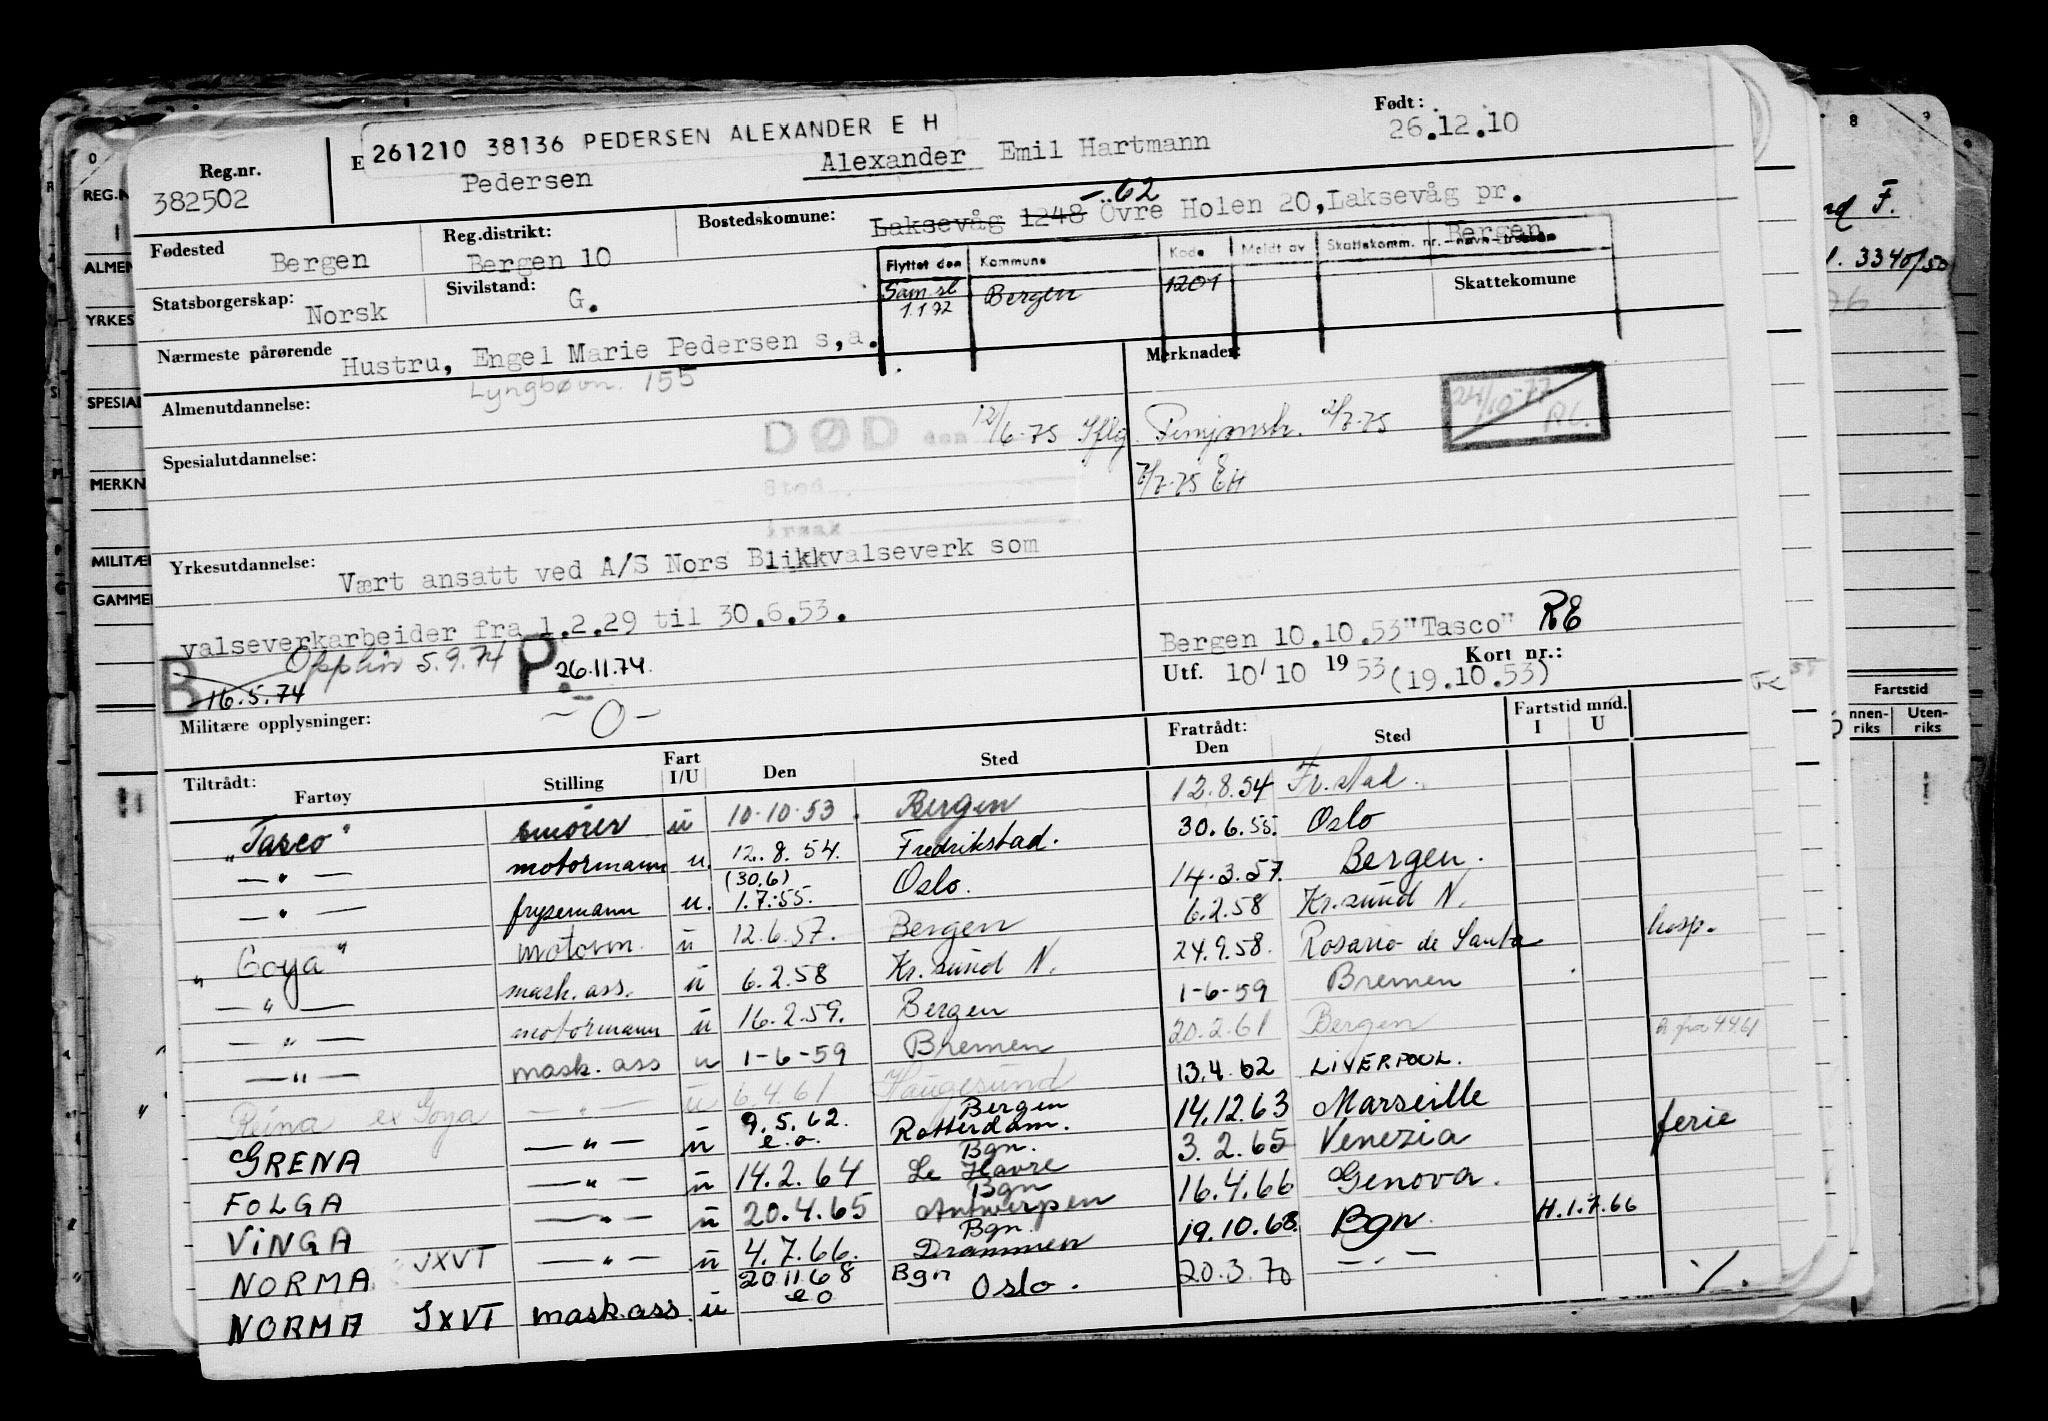 261210 38136 PEDERSEN ALEXANDER E H
Født:
Reg.nr. E Alexander Emil Hartmann 26.12.10
382502 Pedersen
Bostedskomune: Laksevåg 1248 -62 Övre Holen 20, Laksevåg pr. Bergen
Fødested Bergen
Reg.distrikt: Bergen 10
Flyttet den Kommune Kode Meldt av Skattekomm. nr. - navn -
Sam.sl. 1.1.72 Bergen 1201
Skattekomune
Statsborgerskap: Norsk
Sivilstand: G.
Nærmeste pårørende Hustru, Engel Marie Pedersen s,a.
Lyngbøvn. 155
Merknader:
Almenutdannelse:
DØD den 12/6-75 Iflg. 2/7-75
24/10-77
Sted
7/7-75 EH
Spesialutdannelse:
Årsak
Yrkesutdannelse: Vært ansatt ved A/S Nors Blikkvalseverk som
valseverkarbeider fra 1.2.29 til 30.6.53.
B 16.5.74 5.9.74 P. 26.11.74.
Bergen 10.10.53 "Tasco" RE
Utf. 10/10 1953 (19.10.53) Kort nr.:
Militære opplysninger: -0-
Tiltrådt: Fartøy Stilling Fart I/U Den Sted Fratrådt: Den Sted Fartstid mnd. I U
"Tasco" smører u 10.10.53. Bergen 12.8.54 Fr.stad.
— " — motormann u. 12.8.54. Fredrikstad. 30.6.55. Oslo
— " — frysemann u. (30.6) 1.7.55. Oslo. 14.3.57. Bergen.
"Goya" motorm. u 12.6.57. Bergen 6.2.58 Kr.sund N.
— " — mask. ass. u 6.2.58 Kr.sund N. 24.9.58. Rosario de Santa hosp.
— " — motormann u 16.2.59. Bergen 1-6-59 Bremen
— " — mask. ass u 1-6-59 Bremen 20.2.61 Bergen
Reina ex Goya — " — u 6.4.61 Haugesund 13.4.62 LIVERPOOL.
GRENA — " — u 9.5.62. e.o. Bergen Rotterdam. 14.12.63 Marseille
FOLGA — " — u 14.2.64 Bgn. Le Havre 3.2.65 Venezia ferie
VINGA — " — u 20.4.65 Bgn Antwerpen 16.4.66 Genova.
NORMA JXVT — " — u 4.7.66. Bgn. Drammen 19.10.68. Bgn. H.1.7.66
NORMA JXVT mask.ass. u 20.11.68 e o Bgn Oslo. 20.3.70 — " — ·/.
REG.N
ALMEN
YRKES
SPESIAL
MERKN
MILITÆR
GAMMEL
F.
3340/50
Fartstid
nnen-riks Uten-riks